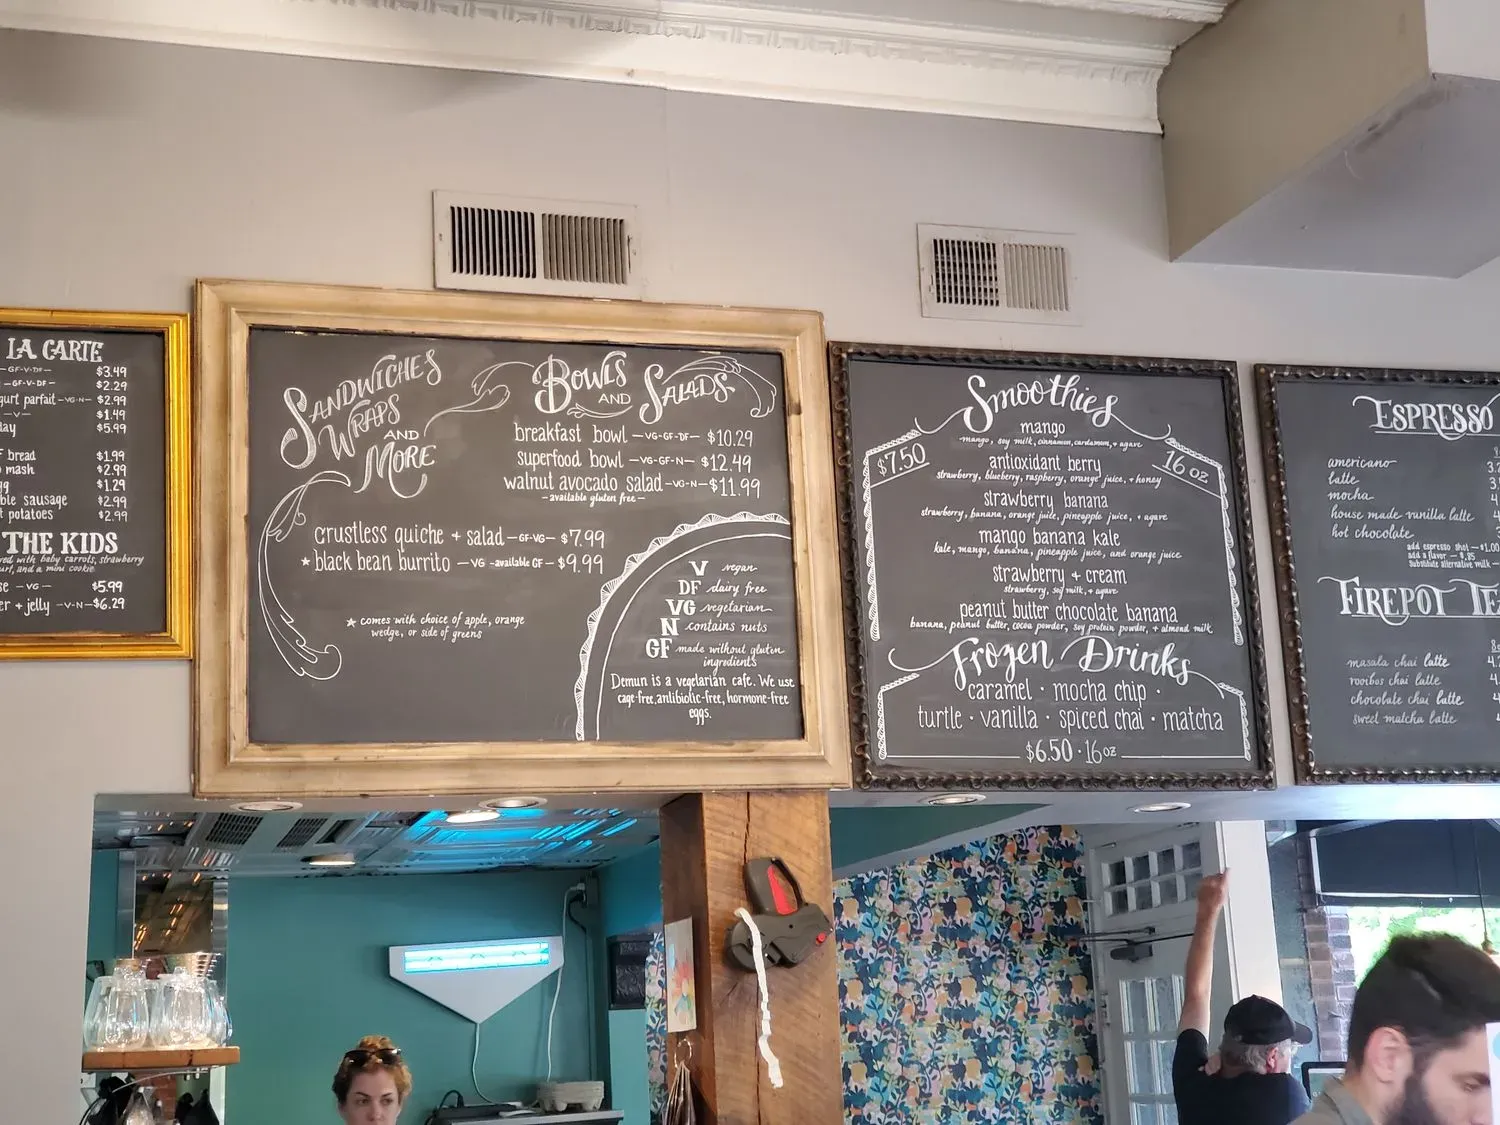 LA CARTE
—GF-V-DF— $3.49
—GF-V-DF— $2.29
gurt parfait —VG-N— $2.99
—V— $1.49
ay $5.99
bread $1.99
mash $2.99
$1.29
ble sausage $2.99
t potatoes $2.99
THE KIDS
ed with baby carrots, strawberry
urt, and a mini cookie
se —VG— $5.99
er + jelly —V-N— $6.29
SANDWICHES
WRAPS
AND
MORE
crustless quiche + salad —GF-VG— $7.99
★ black bean burrito —VG -available GF— $9.99
★ comes with choice of apple, orange
wedge, or side of greens
BOWLS AND SALADS
breakfast bowl —VG-GF-DF— $10.29
superfood bowl —VG-GF-N— $12.49
walnut avocado salad —VG-N— $11.99
—available gluten free—
V vegan
DF dairy free
VG vegetarian
N contains nuts
GF made without gluten
ingredients
Demun is a vegetarian cafe. We use
cage-free, antibiotic-free, hormone-free
eggs.
Smoothies
$7.50
16 oz
mango
mango, soy milk, cinnamon, cardamom, + agave
antioxidant berry
strawberry, blueberry, raspberry, orange juice, + honey
strawberry banana
strawberry, banana, orange juice, pineapple juice, + agave
mango banana kale
kale, mango, banana, pineapple juice, and orange juice
strawberry + cream
strawberry, soy milk, + agave
peanut butter chocolate banana
banana, peanut butter, cocoa powder, soy protein powder, + almond milk
Frozen Drinks
caramel · mocha chip ·
turtle · vanilla · spiced chai · matcha
$6.50 · 16oz
ESPRESSO
americano
latte
mocha
house made vanilla latte
hot chocolate
add espresso shot — $1.00
add a flavor — $.85
substitute alternative milk —
FIREPOT TE
masala chai latte
rooibos chai latte
chocolate chai latte
sweet matcha latte